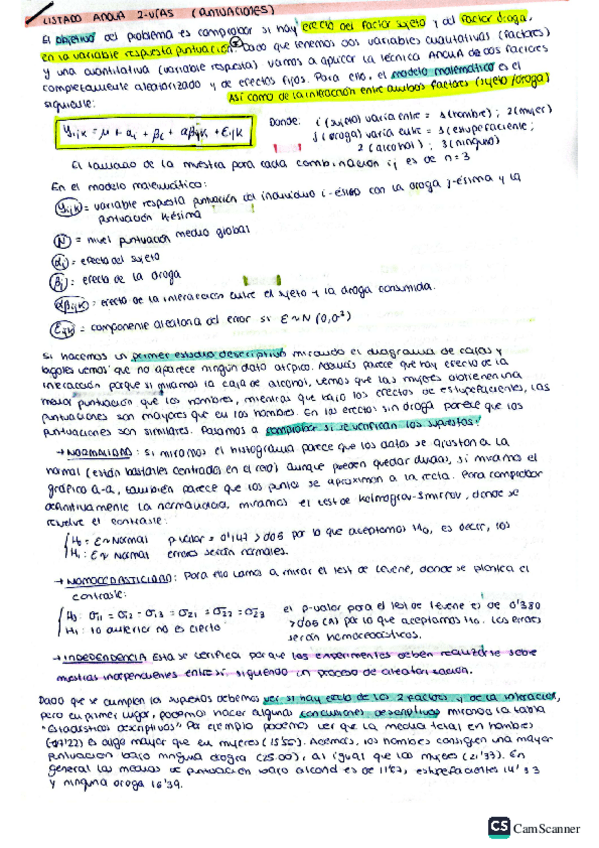 LISTADO ANOVA 2-VÍAS (PUNTUACIONES)
El objetivo del problema es comprobar si hay efecto del factor sujeto y del factor droga,
en la variable respuesta puntuación. Dado que tenemos dos variables cualitativas (factores)
y una cuantitativa (variable respuesta) vamos a aplicar la técnica ANOVA de dos factores
completamente aleatorizado y de efectos fijos. Para ello, el modelo matemático es el
siguiente:
Así como de la interacción entre ambos factores (sujeto/droga)
Yijk = μ + αi + βj + αβijk + εijk
Donde: i (sujeto) varía entre = 1(hombre); 2(mujer)
j (droga) varía entre = 1(estupefaciente;
2 (alcohol); 3(ninguno)
El tamaño de la muestra para cada combinación ij es de n = 3
En el modelo matemático:
Yijk = variable respuesta puntuación del individuo i-ésimo con la droga j-ésima y la
puntuación k-ésima
μ = nivel puntuación medio global
αi = efecto del sujeto
βj = efecto de la droga
αβijk = efecto de la interacción entre el sujeto y la droga consumida.
εijk = componente aleatoria del error si ε~N (0,σ²)
Si hacemos un primer estudio descriptivo mirando el diagrama de cajas y
bigotes vemos que no aparece ningún dato atípico. Además parece que hay efecto de la
interacción porque si miramos la caja de alcohol, vemos que las mujeres obtienen una
mayor puntuación que los hombres, mientras que bajo los efectos de estupefacientes, las
puntuaciones son mayores que en los hombres. En los efectos sin droga parece que las
puntuaciones son similares. Pasamos a comprobar si se verifican los supuestos:
→ NORMALIDAD: si miramos el histograma parece que los datos se ajustan a la
normal (están bastantes centrados en el cero) aunque pueden quedar dudas, si miramos el
gráfico q-q, también parece que los puntos se aproximan a la recta. Para comprobar
definitivamente la normalidad, miramos el test de Kolmogrov-Smirnov, donde se
resuelve el contraste:
H0: ε~Normal p.valor = 0'147 > 0'05 por lo que aceptamos H0, es decir, los
H1: ε~Normal errores serán normales.
→ HOMOCEDASTICIDAD: Para ello vamos a mirar el test de Levene, donde se plantea el
contraste:
H0: σ11 = σ12 = σ13 = σ21 = σ22 = σ23 el p-valor para el test de Levene es de 0'380
H1: lo anterior no es cierto > 0'05 (α) por lo que aceptamos H0. Los errores
serán homocedásticos.
→ INDEPENDENCIA Esta se verifica porque los experimentos deben realizarse sobre
muestras independientes entre sí, siguiendo un proceso de aleatorización.
Dado que se cumplen los supuestos debemos ver si hay efecto de los 2 factores y de la interacción,
pero en primer lugar, podemos hacer algunas conclusiones descriptivas mirando la tabla
"Estadísticos descriptivos" Por ejemplo podemos ver que la media total en hombres
es algo mayor que en mujeres (15'55). Además, los hombres consiguen una mayor
puntuación bajo ninguna drogra (25.00), al igual que las mujeres (21'33). En
general las medias de puntuación bajo alcohol es de 11'67, estupefacientes 14'33
y ninguna droga 16'39.
CS CamScanner